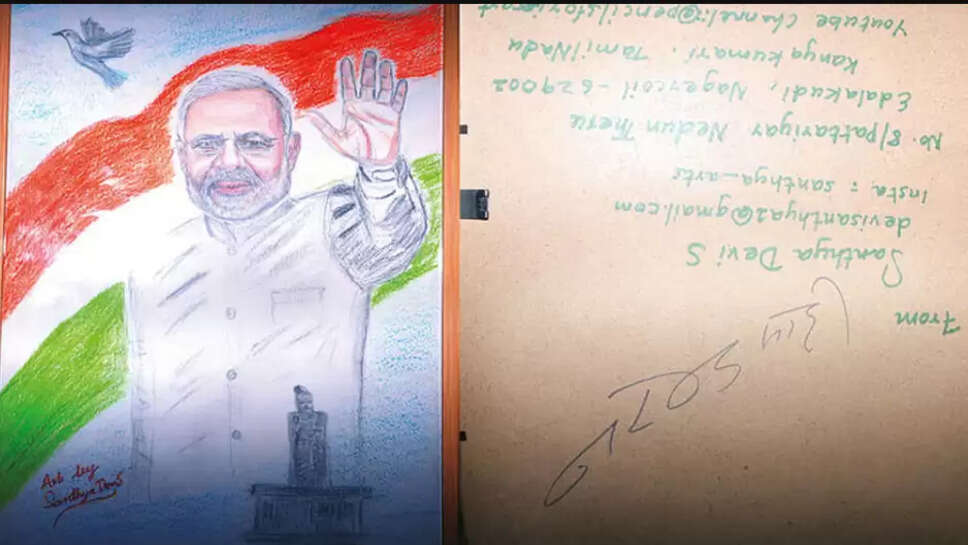 Art by
Santhya Devi S
From
Santhya Devi S
devisanthya2@gmail.com
Insta : santhya_arts
No. 8/Pattariyar Nedun Theru
Edalakudi, Nagercoil - 629002
Kanyakumari, TamilNadu
Youtube Channel: